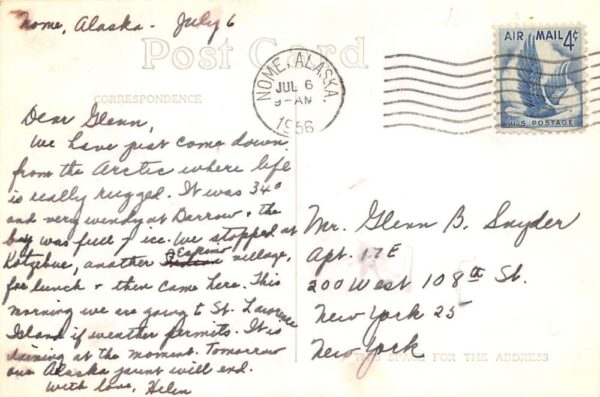 Nome, Alaska - July 6
Post Card
AIR MAIL 4¢
U.S. POSTAGE
NOME, ALASKA.
JUL 6
9-AM
1956
CORRESPONDENCE
Dear Glenn,
We have just come down
from the Arctic where life
is really rugged. It was 34°
and very windy at Barrow & the
bay was full of ice. We stopped at
Kotzebue, another Eskimo village,
for lunch & then came here. This
morning we are going to St. Lawrence
Island if weather permits. It is
raining at the moment. Tomorrow
our Alaska jaunt will end.
With love, Helen
Mr. Glenn B. Snyder
Apt. 17E
200 West 108th St.
New York 25
New York
THIS SPACE FOR THE ADDRESS